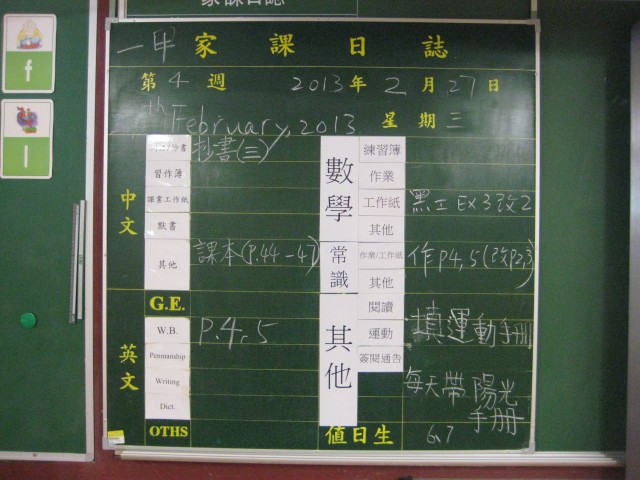 家課日誌
f
l
一甲 家課日誌
第 4 週 2013 年 2 月 27 日
th February, 2013 星期 三
抄書(三)
中文
習作簿
課業工作紙
默書
其他 課本(P.44-47)
數學
練習簿
作業
工作紙 黑工 Ex3改2
其他
常識
作業/工作紙 作P4,5(改P2,3)
其他
英文
G.E.
W.B. P.4,5
Penmanship
Writing
Dict.
OTHS
其他
閱讀
運動 填運動手冊
簽閱通告
每天帶陽光
手冊
值日生 6,7